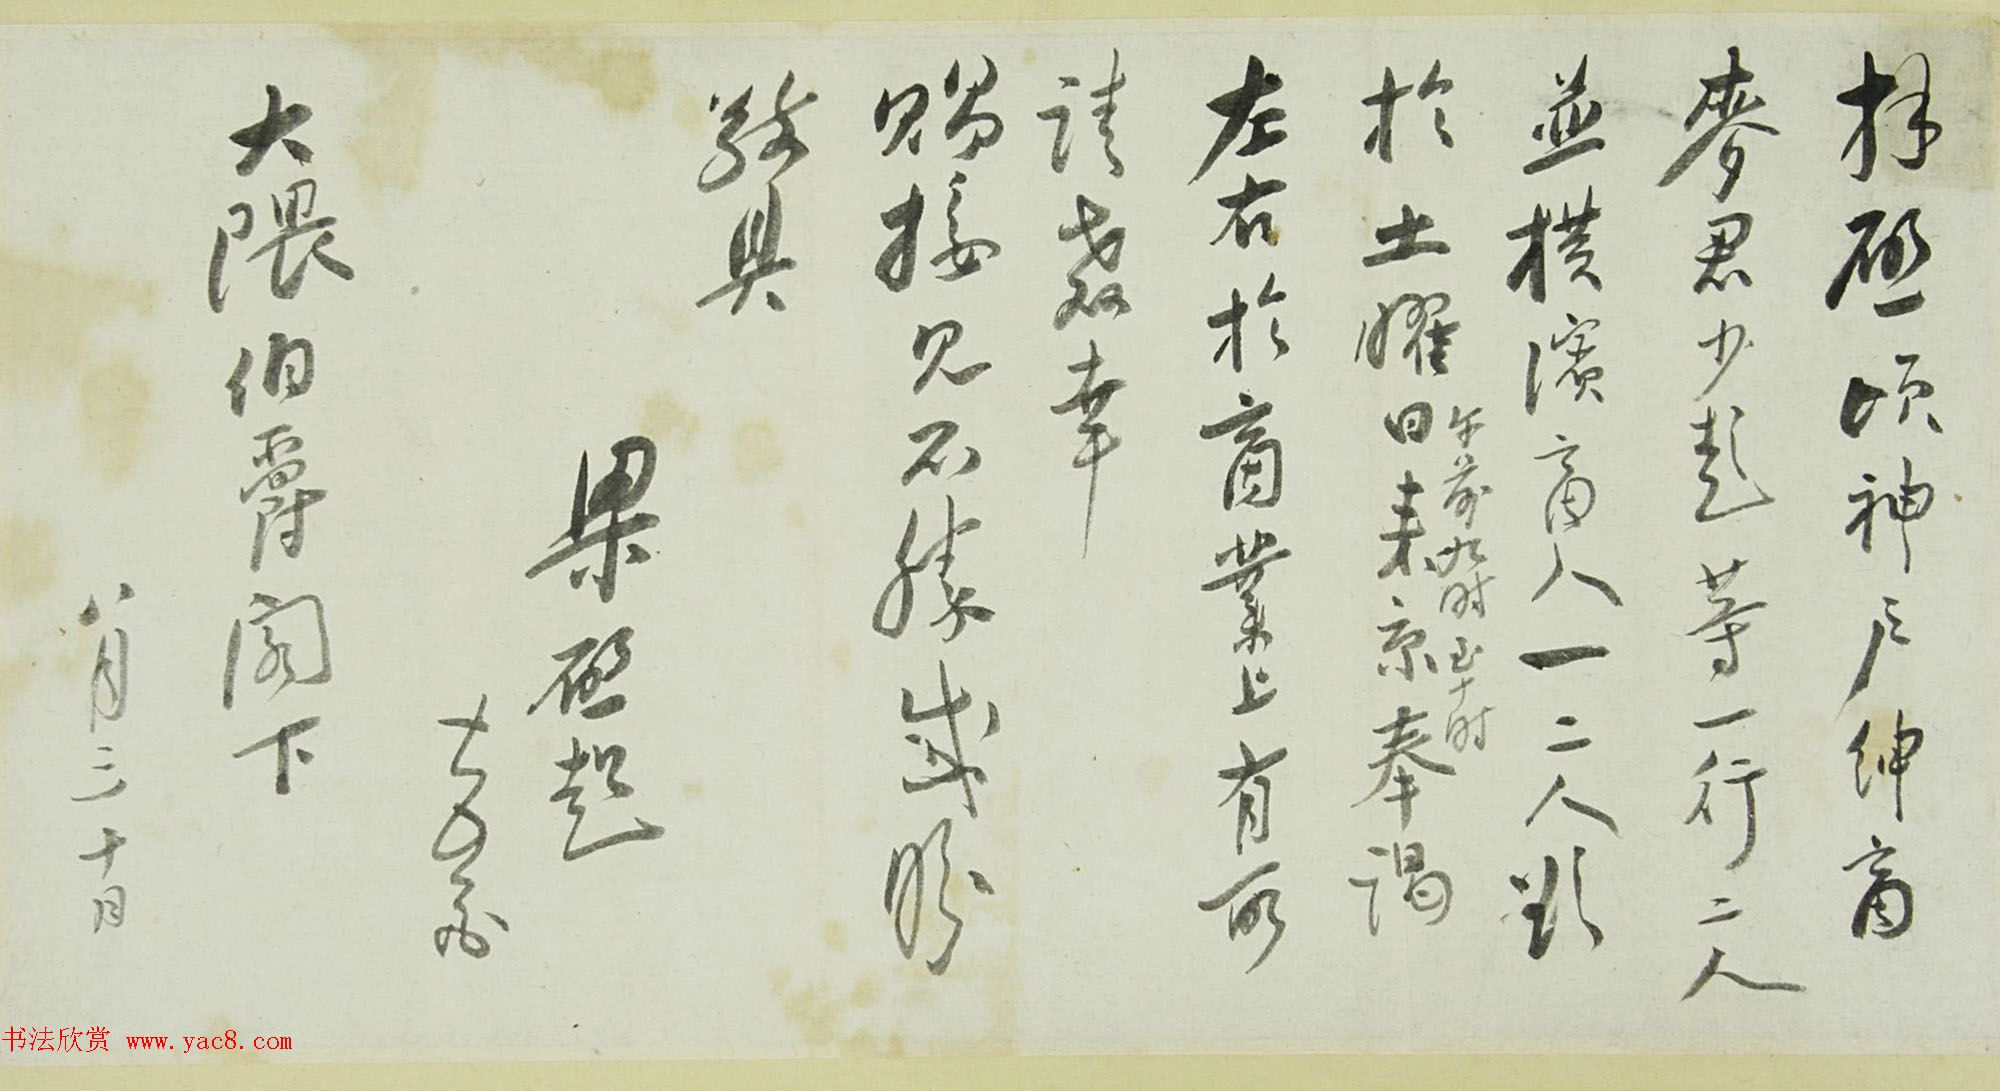 拝啓頃神戸紳商
麥君少彭等一行二人
並横濱商人一二人欲
於土曜日来京奉謁
午前九時至十時
左右於商業上有所
請教幸
賜接見不勝感盼
敬具
梁啓超
大隈伯爵閣下
八月三十日
书法欣赏 www.yac8.com